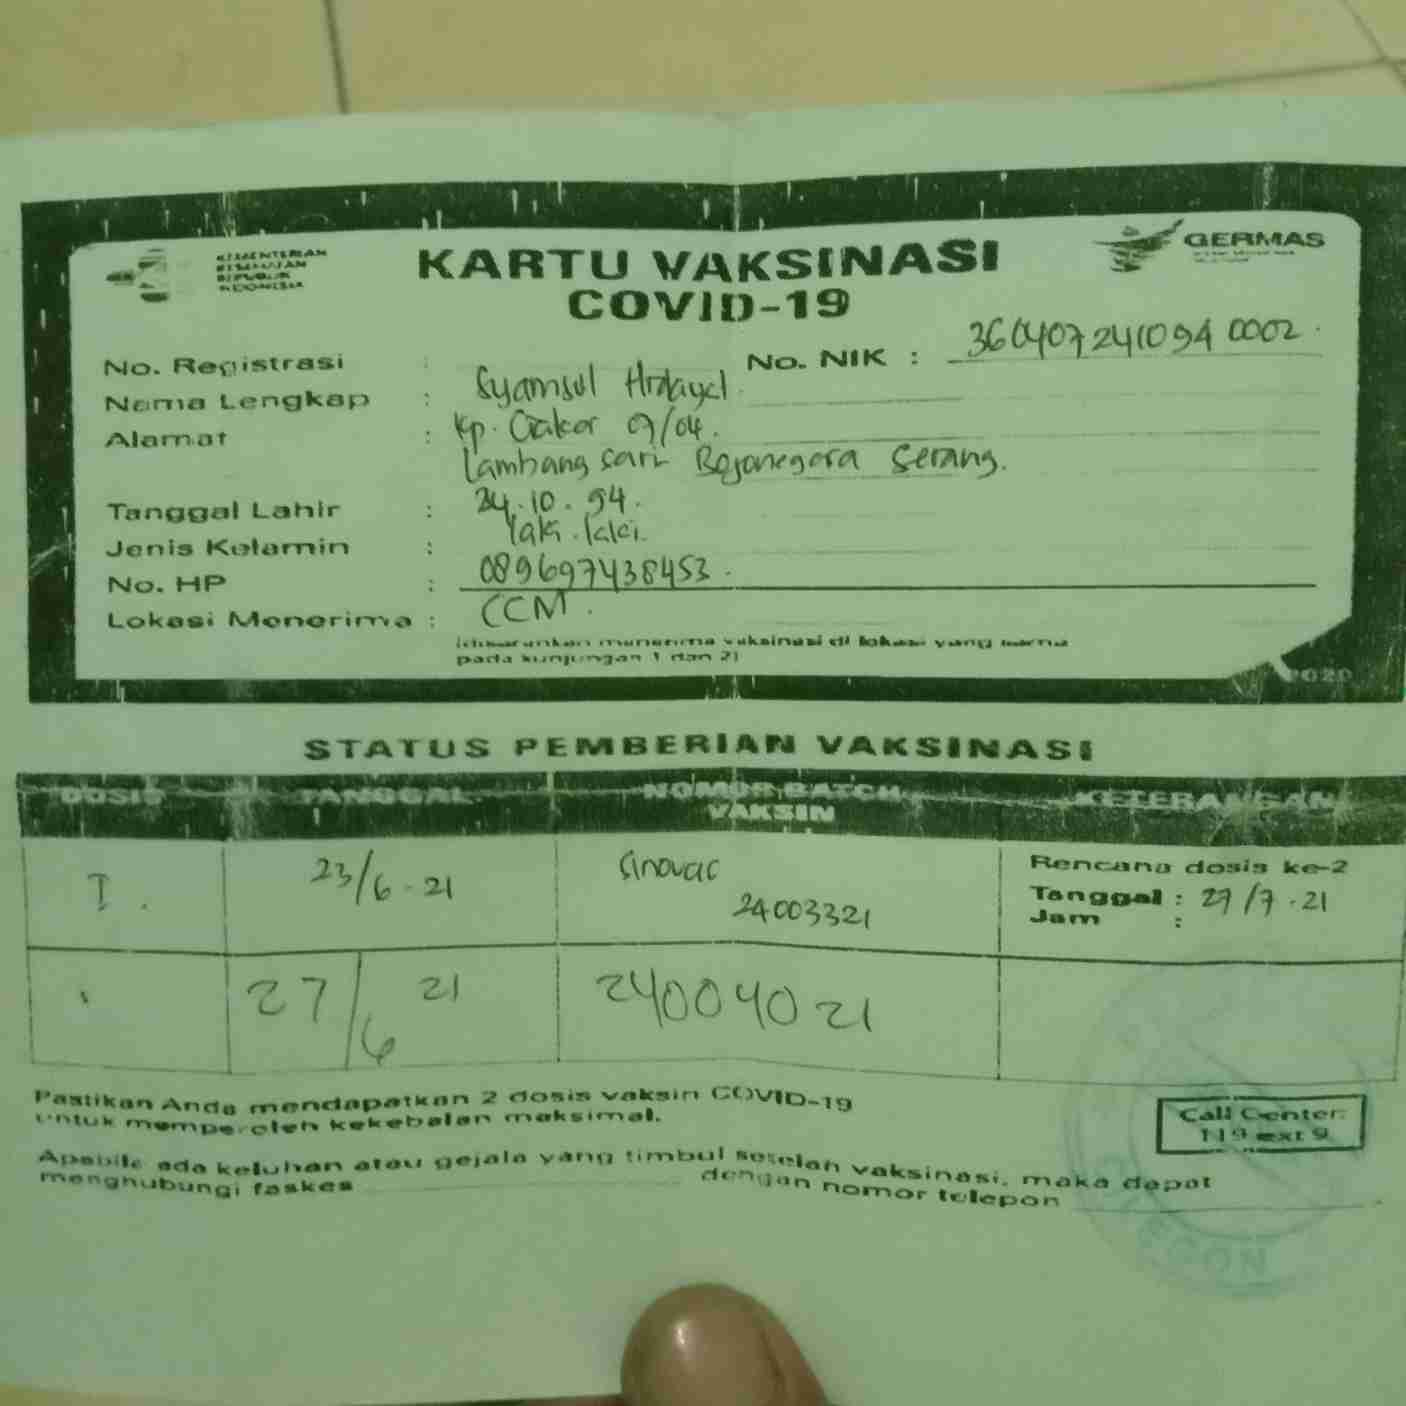 KEMENTERIAN
KESEHATAN
REPUBLIK
INDONESIA
KARTU VAKSINASI
COVID-19
GERMAS
No. Registrasi :
No. NIK : 3604072410940002
Nama Lengkap : Syamsul Hidayat
Alamat : Kp. 04.
Lambang sari Bojonegara Serang.
Tanggal Lahir : 24.10.94.
Jenis Kelamin : laki-laki
No. HP : 089697438453
Lokasi Menerima : CCM.
(disarankan menerima vaksinasi di lokasi yang sama
pada kunjungan 1 dan 2)
2020
STATUS PEMBERIAN VAKSINASI
DOSIS TANGGAL NOMOR BATCH VAKSIN KETERANGAN
I. 23/6-21 Sinovac 24003321
Rencana dosis ke-2
Tanggal : 27/7-21
Jam :
27/6 21 24004021
Pastikan Anda mendapatkan 2 dosis vaksin COVID-19
untuk memperoleh kekebalan maksimal.
Call Center:
119 ext 9
Apabila ada keluhan atau gejala yang timbul setelah vaksinasi, maka dapat
menghubungi faskes dengan nomor telepon